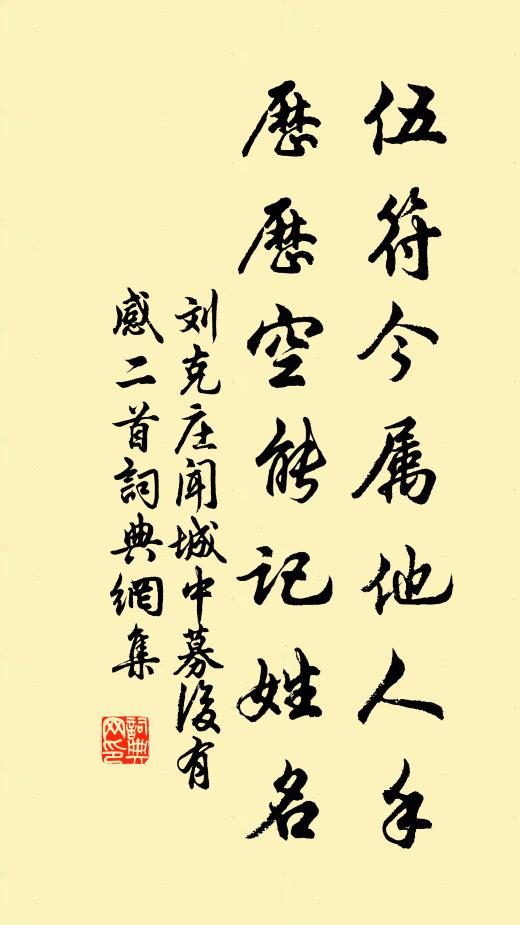 伍符今属他人手
历历空能记姓名
刘克庄闻城中募浚有
感二首詞典網集
詞典
网印